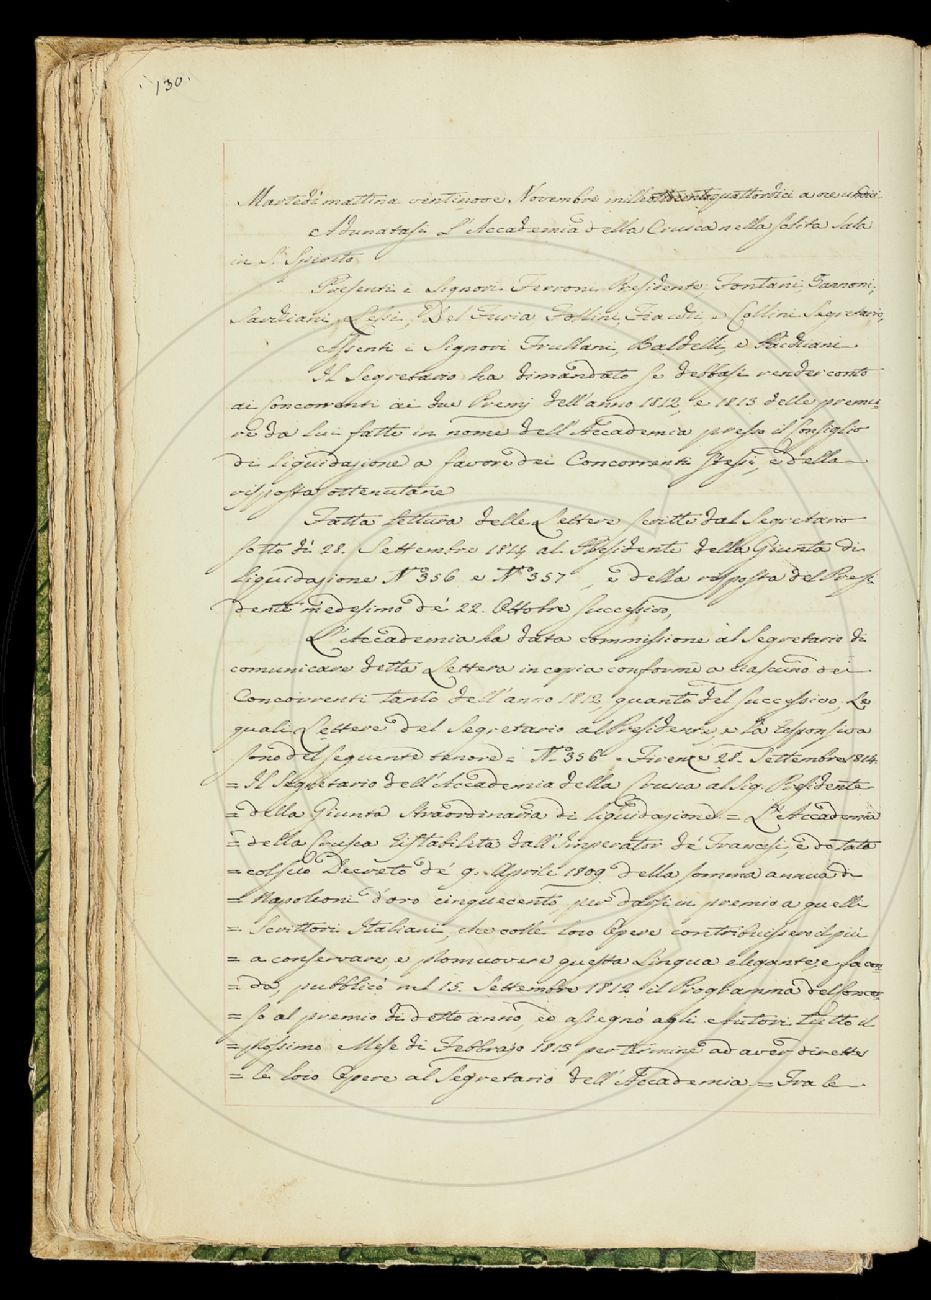 130.
Martedì mattina ventinove Novembre milleottocentoquattordici a ore undici
Adunatasi l'Accademia della Crusca nella solita Sala
in S. Spirito
Presenti i Signori Ferroni Presidente Fontani, Zannoni,
Sarchiani, Lessi, Del Furia Follini, Fiacchi, e Collini Segretario,
Assenti i Signori Frullani, Baldelli, e Pacchiani
Il Segretario ha dimandato se debbasi render conto
ai Concorrenti ai due Premj dell'anno 1812, e 1813 delle premu=
re da lui fatte in nome dell'Accademia presso il Consiglio
di liquidazione a favore dei Concorrenti stessi, e della
risposta ottenutane
Fatta lettura delle Lettere scritte dal Segretario
sotto dì 28. Settembre 1814 al Presidente della Giunta di
liquidazione N.º 356 e N.º 357, e della risposta del Presi=
dente medesimo de' 22. Ottobre successivo,
L'Accademia ha data commissione al Segretario di
comunicare detta Lettera in copia conforme a ciascuno dei
Concorrenti tanto dell'anno 1812, quanto del successivo, Le
quali Lettere del Segretario al Presidente, e la responsiva
sono del seguente tenore = N.º 356 = Firenze 28. Settembre 1814
= Il Segretario dell'Accademia della Crusca al Sig. Presidente
= della Giunta Straordinaria di liquidazione = L'Accademia
= della Crusca ristabilita dall'Imperator de' Francesi, e dotata
= col suo Decreto de' 9. Aprile 1809 della somma annua di
= Napoleoni d'oro cinquecento, per darsi in premio a quelli
= Scrittori Italiani, che colle loro Opere contribuissero di più
= a conservare, e promuovere questa Lingua elegante, e facon=
= da, pubblicò nel 15. Settembre 1812 il Programma del concor=
= so al premio di detto anno, ed assegnò agli Autori tutto il
= prossimo Mese di Febbrajo 1813 per termine ad aver dirette
= le loro Opere al Segretario dell'Accademia = Fra le